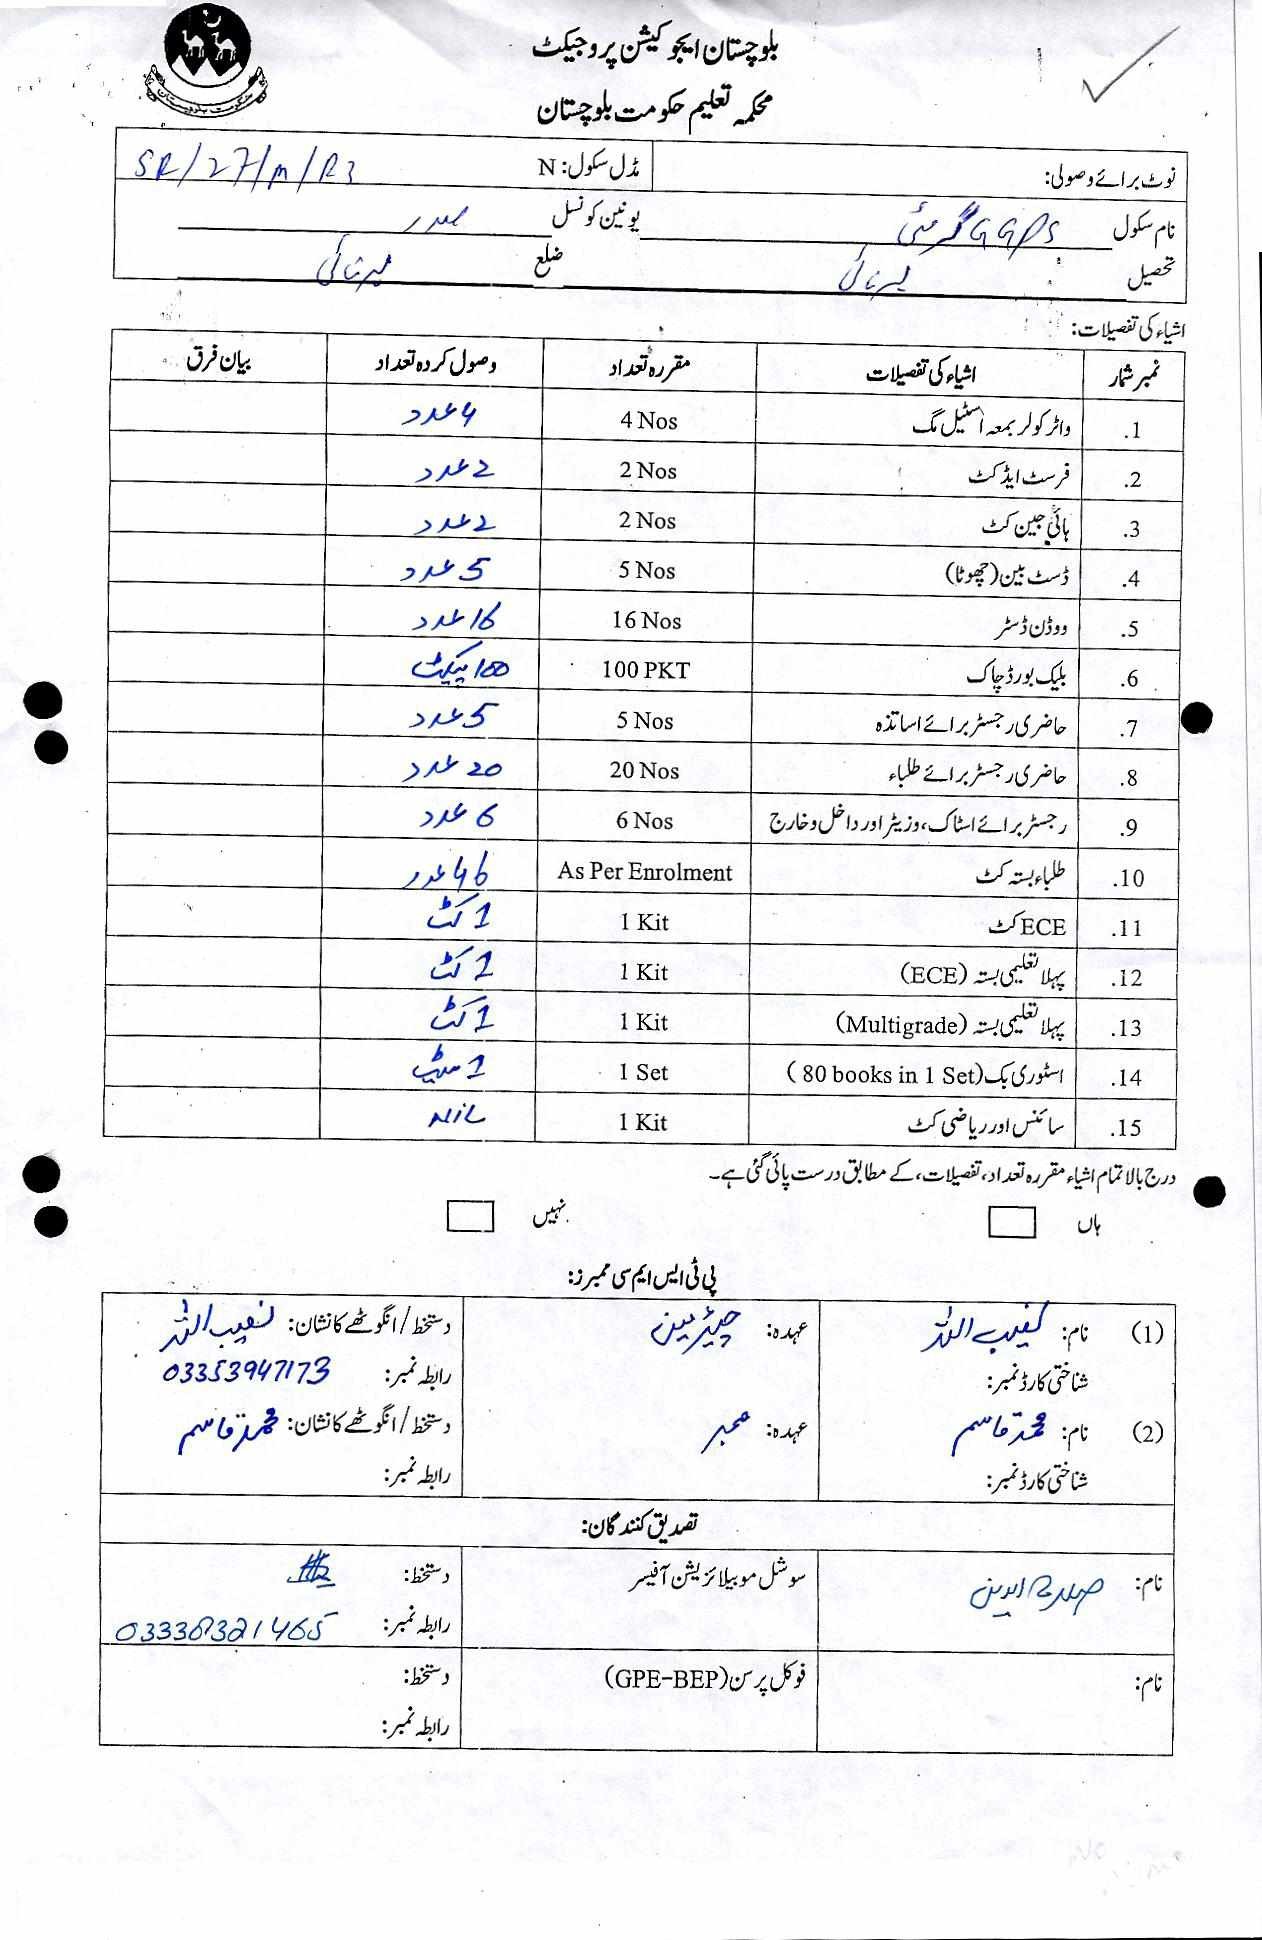 بلوچستان ایجوکیشن پروجیکٹ
محکمہ تعلیم حکومت بلوچستان
حکومت بلوچستان
نوٹ برائے وصولی: مڈل سکول: N SR/27/M/R3
نام سکول GGPS یونین کونسل صدر
تحصیل ہرنائی ضلع ہرنائی
اشیاء کی تفصیلات:
نمبر شمار اشیاء کی تفصیلات مقررہ تعداد وصول کردہ تعداد بیان فرق
1. واٹر کولر بمعہ اسٹیل مگ 4 Nos 4 عدد
2. فرسٹ ایڈ کٹ 2 Nos 2 عدد
3. ہائی جین کٹ 2 Nos 2 عدد
4. ڈسٹ بین (چھوٹا) 5 Nos 5 عدد
5. ووڈن ڈسٹر 16 Nos 16 عدد
6. بلیک بورڈ چاک 100 PKT 100 پیکٹ
7. حاضری رجسٹر برائے اساتذہ 5 Nos 5 عدد
8. حاضری رجسٹر برائے طلباء 20 Nos 20 عدد
9. رجسٹر برائے اسٹاک، وزیٹر اور داخل و خارج 6 Nos 6 عدد
10. طلباء بستہ کٹ As Per Enrolment 46 عدد
11. ECE کٹ 1 Kit 1 کٹ
12. پہلا تعلیمی بستہ (ECE) 1 Kit 1 کٹ
13. پہلا تعلیمی بستہ (Multigrade) 1 Kit 1 کٹ
14. اسٹوری بک (80 books in 1 Set) 1 Set 1 سیٹ
15. سائنس اور ریاضی کٹ 1 Kit Nil
درج بالا تمام اشیاء مقررہ تعداد، تفصیلات، کے مطابق درست پائی گئی ہے۔
ہاں نہیں
پی ٹی ایس ایم سی ممبرز:
(1) نام: نقیب اللہ عہدہ: چیئرمین دستخط/انگوٹھے کا نشان: نقیب اللہ
شناختی کارڈ نمبر: رابطہ نمبر: 03353947173
(2) نام: محمد قاسم عہدہ: ممبر دستخط/انگوٹھے کا نشان: محمد قاسم
شناختی کارڈ نمبر: رابطہ نمبر:
تصدیق کنندگان:
نام: صلاح الدین سوشل موبیلائزیشن آفیسر دستخط:
رابطہ نمبر: 03338321465
نام: فوکل پرسن (GPE-BEP) دستخط:
رابطہ نمبر: